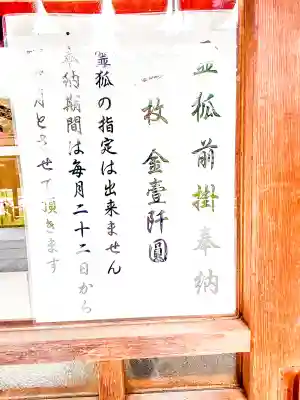 霊狐前掛奉納
一枚 金壹阡圓
・霊狐の指定は出来ません
・奉納期間は毎月二十二日から
月とさせて頂きます